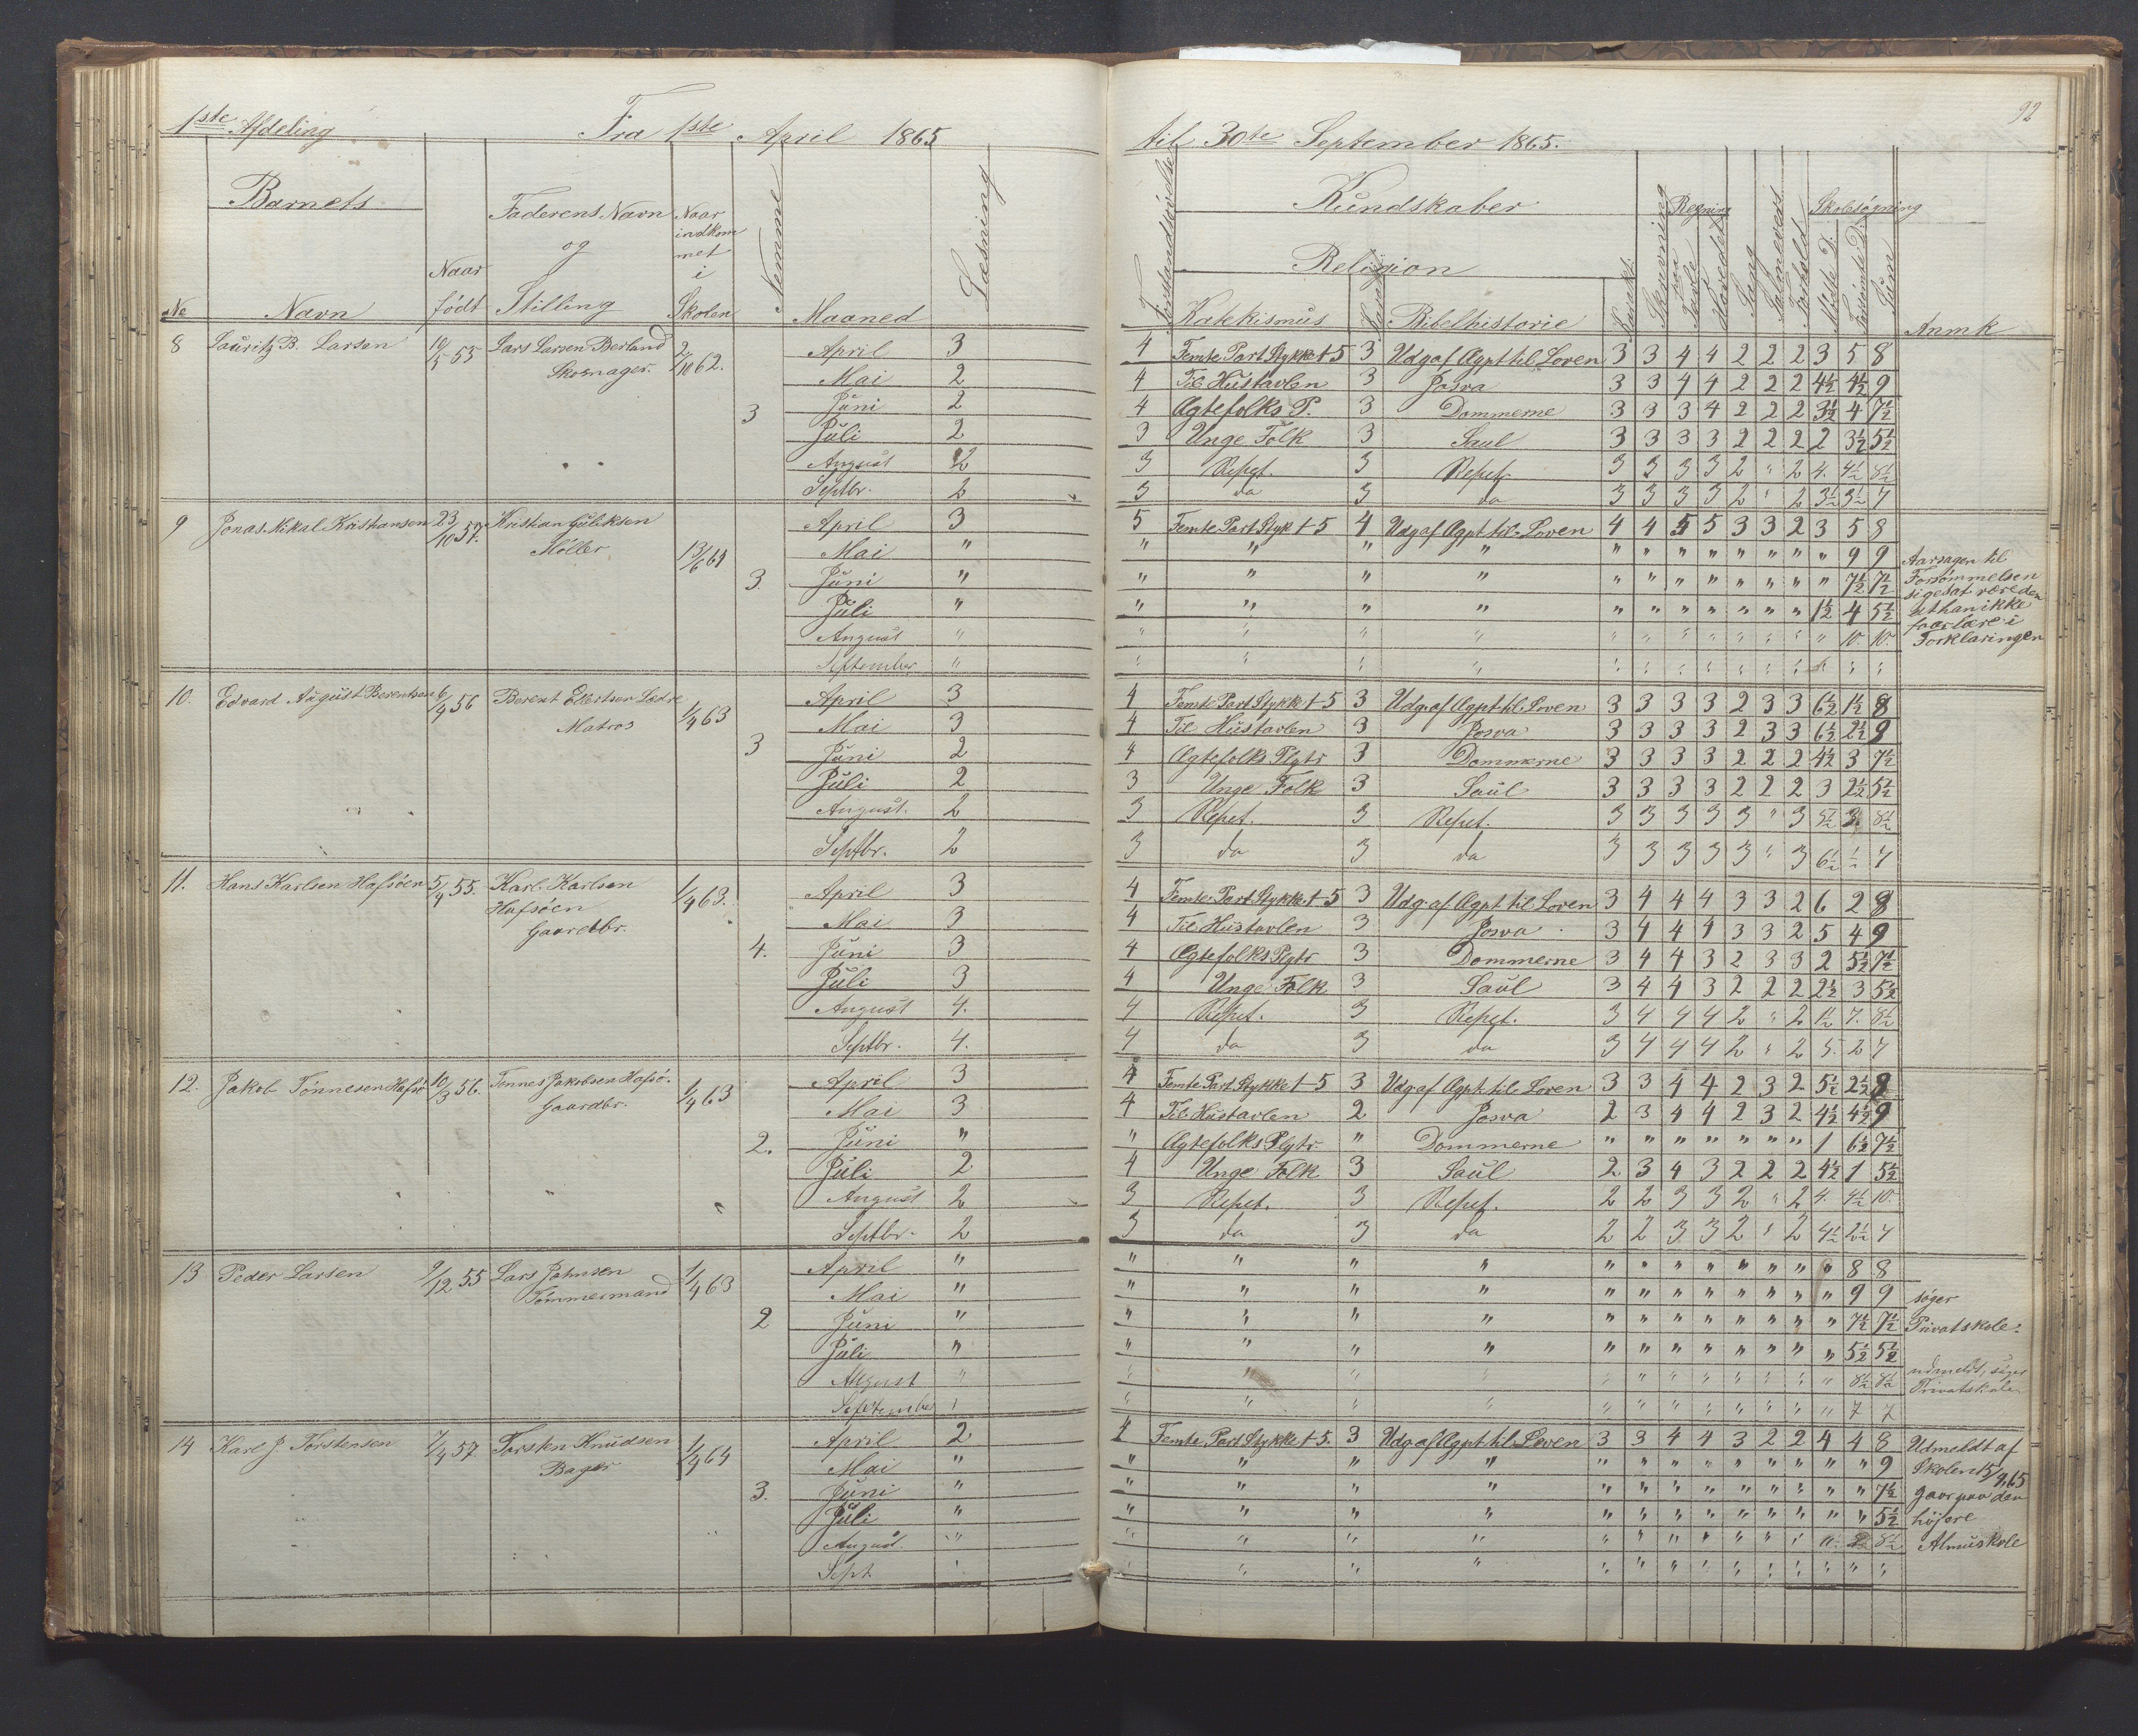 92
1ste Afdeling Fra 1ste April 1865 til 30te September 1865.
Barnets Faderens Navn og Stilling Naar indkommet i Skolen Nemme Maaned Læsning Forstandsøvelse Kundskaber Skrivning Regning Sang Salmevers Forhold Skolesøgning Anmk
No Navn Naar født Religion Tavle Hovedet Mødte D. Forsømte D. Sum
Katekismus Karakt. Bibelhistorie Karakt.
8 Lauritz B. Larsen 10/5 55 Lars Larsen Berland 2/10 62. April 3 4 Femte Part Stykke 1-5 3 Udg af Ægpt til Loven 3 3 4 4 2 2 2 3 5 8
Skomager. Mai 2 4 Til Hustavlen 3 Josva 3 3 4 4 2 2 2 4½ 4½ 9
3 Juni 2 4 Ægtefolks P. 3 Dommerne 3 3 3 4 2 2 2 3½ 4 7½
Juli 2 3 Unge Folk 3 Saul 3 3 3 3 2 2 2 2 3½ 5½
August 2 3 Repet. 3 Repet. 3 3 3 3 2 " 2 4. 4½ 8½
Septbr. 2 3 da 3 da 3 3 3 3 2 " 2 3½ 3½ 7
9 Jonas Nikal Kristiansen 23/10 57. Kristian Guliksen 13/6 64 April 3 5 Femte Part Styk 1-5 4 Udg af Ægpt til Loven 4 4 5 5 3 3 2 3 5 8
Møller Mai " " " " " " " " " " " " " 9 9 Aarsagen til
3. Juni " " " " " " " " " " " " " 7½ 7½ Forsømmelsen
siges at være den
Juli " " " " " " " " " " " " 1½ 4 5½ at han ikke
faar lære i
August " " " " " " " " " " " " " 10 10. Forklaringen
September " " " " " " " " " " " " " " "
10. Edvard August Berentsen 6/4 56 Berent Ellertsen Lædre 1/4 63 April 3 4 Femte Part Stykke 1-5 3 Udg. af Ægpt til Loven 3 3 3 3 2 3 3 6½ 1½ 8
Matros Mai 3 4 Til Hustavlen 3 Josva 3 3 3 3 2 3 3 6½ 2½ 9
3 Juni 2 4 Ægtefolks Plgtr 3 Dommerne 3 3 3 3 2 2 2 4½ 3 7½
Juli 2 3 Unge Folk 3 Saul 3 3 3 3 2 2 2 3 2½ 5½
August. 2 3 Repet. 3 Repet. 3 3 3 3 3 " 3 5½ 3. 8½
Septbr. 2 3 da 3 da 3 3 3 3 3 " 3 6½ ½ 7
11. Hans Karlsen Hafsøen 5/4 55. Karl Karlsen 1/4 63. April 3 4 Femte Part Stykke 1-5 3 Udg. af Ægpt til Loven 3 4 4 4 3 3 2 6 2 8
Hafsøen Mai 3 4 Til Hustavlen 3 Josva 3 4 4 4 3 3 2 5 4 9
Gaardbr. 4. Juni 3 4 Ægtefolks Plgtr 3 Dommerne 3 4 4 3 2 3 3 2 5½ 7½
Juli 3 4 Unge Folk 3 Saul 3 4 4 3 2 2 2 2½ 3 5½
August 4. 4 Repet. 3 Repet. 3 4 4 4 2 " 2 1½ 7. 8½
Septbr. 4. 4 da 3 da 3 4 4 4 2 " 2 5. 2 7
12. Jakob Tønnesen Hafsø 10/3 56. Tønnes Jakobsen Hafsø. 1/4 63 April 3 4 Femte Part Stykke 1-5 3 Udg. af Ægpt. til Loven 3 3 4 4 2 3 2 5½ 2½ 8
Gaardbr. Mai 3 4 Til Hustavlen 2 Josva 2 3 4 4 2 3 2 4½ 4½ 9
2. Juni " " Ægtefolks Plgtr. " Dommerne " " " " " " " 1 6½ 7½
Juli 2 4 Unge Folk 3 Saul 2 3 4 3 2 2 2 4½ 1 5½
August 2 3 Repet. 3 Repet. 2 2 3 3 2 " 2 4. 4½ 10.
Septbr. 2 3 da 3 da 2 2 3 3 2 " 2 4½ 2½ 7
13 Peder Larsen 9/12 55 Lars Johnsen 1/4 63 April " " " " " " " " " " " " 8 8
Tømmermand Mai " " " " " " " " " " " " " 9 9 søger
2 Juni " " " " " " " " " " " " " 7½ 7½ Privatskole.
Juli " " " " " " " " " " " " " 5½ 5½
August " " " " " " " " " " " " " 8½ 8½ udmeldt, søger
September " " " " " " " " " " " " " 7 7 Privatskole
14 Karl J. Torstensen 7/4 57. Torsten Knudsen 1/4 64 April 2 4 Femte Part Stykke 1-5. 3 Udg af Ægpt til Loven 3 3 4 4 3 2 2 4 4 8 Udmeldt af
Bager Mai " " " " " " " " " " " " " " 9 Skolen 15/9 65
3. Juni " " " " " " " " " " " " " " 7½ gaar paa den
Juli " " " " " " " " " " " " " " 5½ højere
August. " " " " " " " " " " " " " 8½ Almuskole
Sept " " " " " " " " " " " " " " "